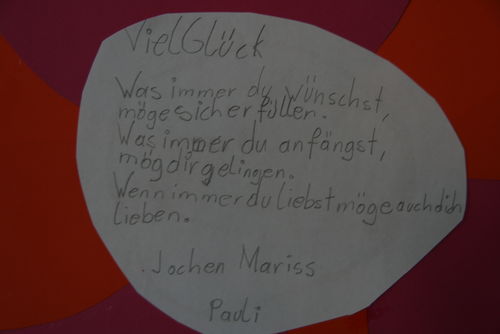 Viel Glück
Was immer du wünschst,
möge sich erfüllen.
Was immer du anfängst,
mög dir gelingen.
Wenn immer du liebst möge auch dich
lieben.
Jochen Mariss
Pauli